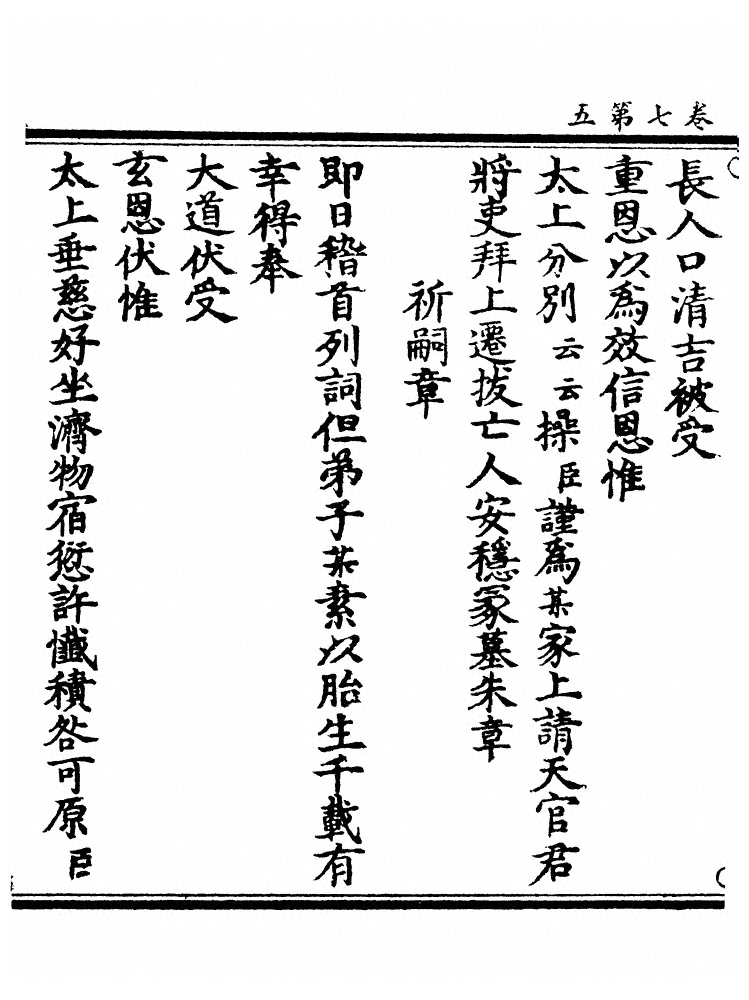 卷七第五
長人口清吉被受
重恩以為效信恩惟
太上分別云云操臣謹為某家上請天官君
將吏拜上遷拔亡人安穩冢墓朱章
祈嗣章
即日稽首列詞但弟子某素以胎生千載有
幸得奉
大道伏受
玄恩伏惟
太上垂慈好坐濟物宿愆許懺積咎可原臣